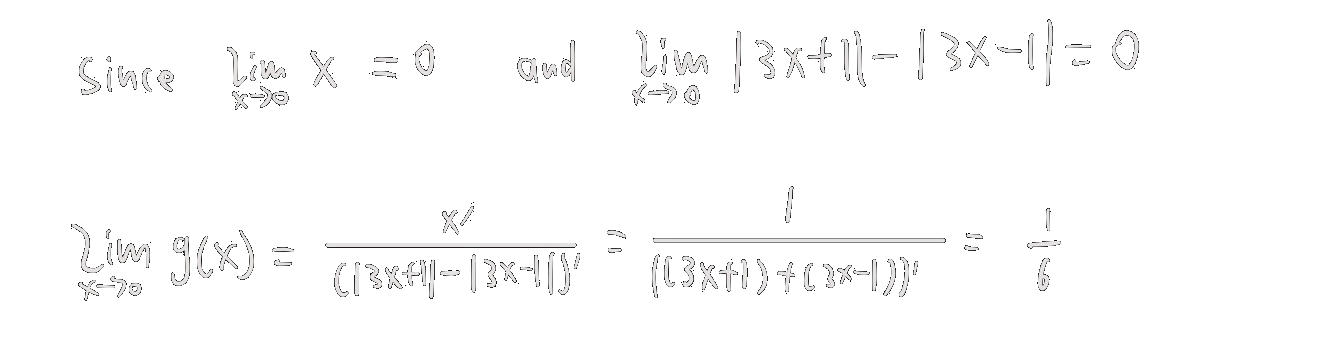 Since lim x→0 x = 0 and lim x→0 |3x+1| - |3x-1| = 0
lim x→0 g(x) = x' / (|3x+1| - |3x-1|)' = 1 / ((3x+1) + (3x-1))' = 1/6